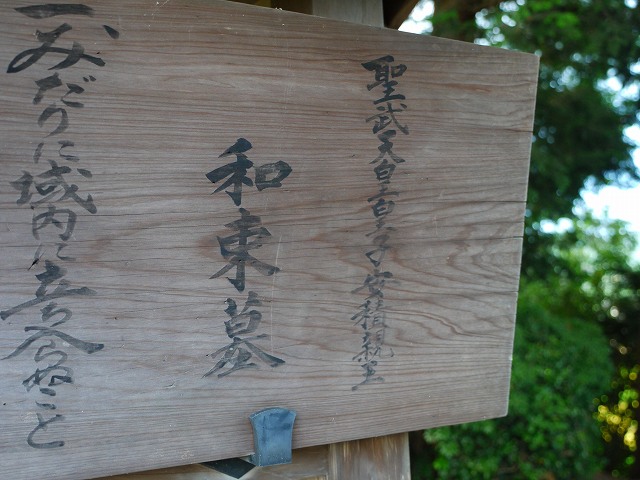 聖武天皇皇子安積親王
和束墓
一みだりに域内に立ち入らぬこと